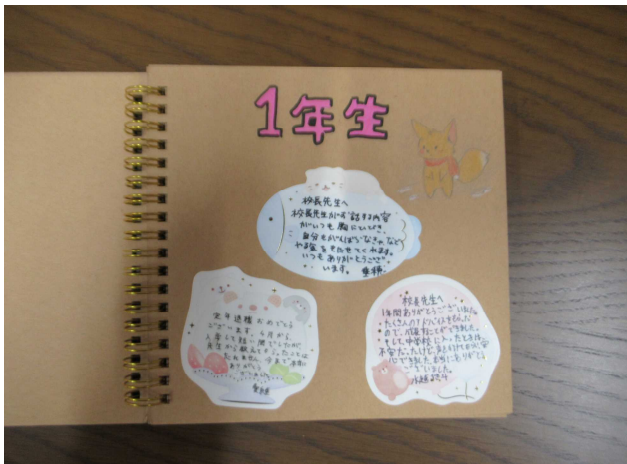 1年生
校長先生へ
校長先生がお話する内容
がいつも胸にひびき
自分もがんばらなきゃなどと
やる気をもたせてくれます。
いつもありがとうござ
います。
定年退職おめでとう
ございます。4月から
入学して短い間でしたが
先生から教えてもらったことは
忘れません。今まで本当に
ありがとう
ございました
校長先生へ
1年間ありがとうございました。
たくさんのアドバイスをもらった
ので、成長することができました。
そして中学校に入ったときは
不安だったけど、
できました。本当にありがとう
ございました。